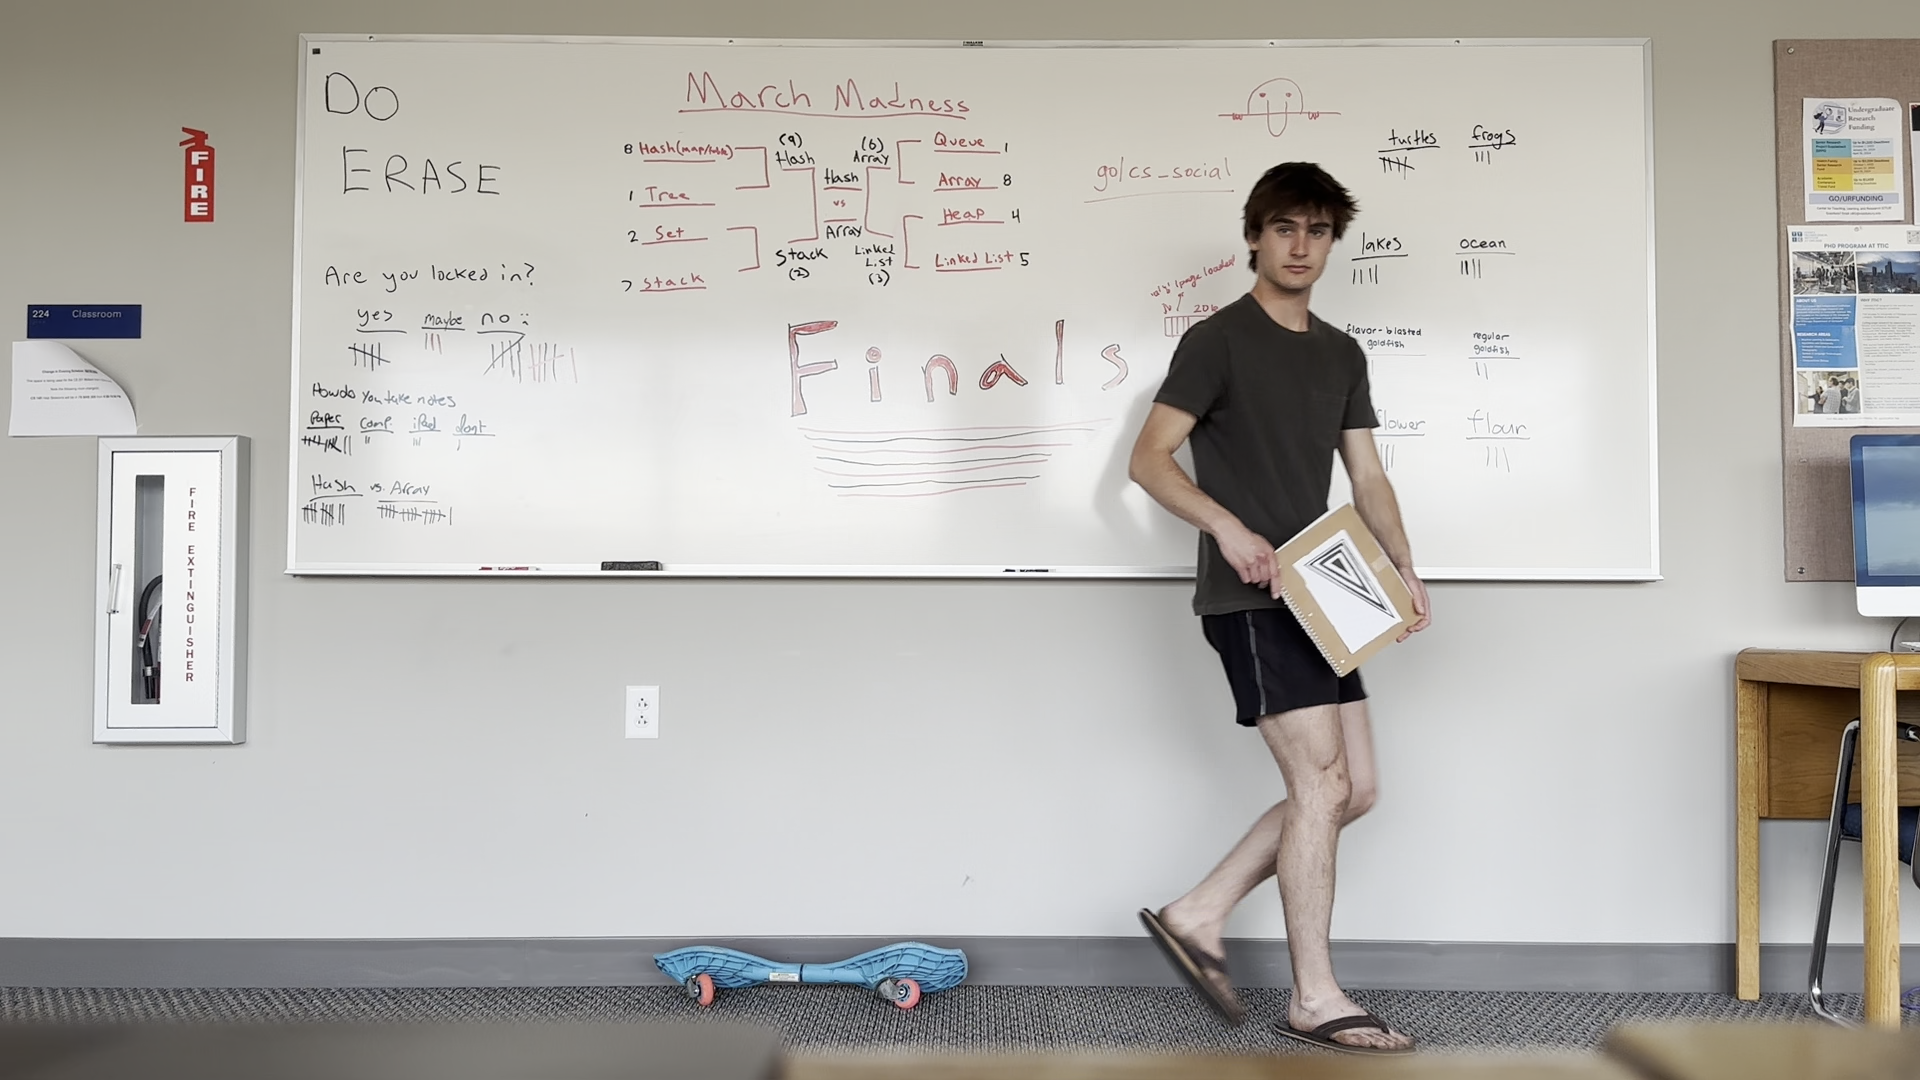 DO
ERASE
FIRE
224 Classroom
FIRE EXTINGUISHER
Are you locked in?
yes maybe no :
How do you take notes
Paper comp. iPad dont
Hash vs. Array
March Madness
8 Hash(map/table)
1 Tree
2 Set
7 Stack
(9)
Hash
Stack
(2)
Hash
vs
Array
(6)
Array
Linked
List
(3)
Queue 1
Array 8
Heap 4
Linked List 5
Finals
go/cs_social
page loaded!
turtles frogs
lakes ocean
flavor-blasted
goldfish
regular
goldfish
flower flour
Undergraduate
Research
Funding
GO/URFUNDING
PHD PROGRAM AT TTIC
ABOUT US
RESEARCH AREAS